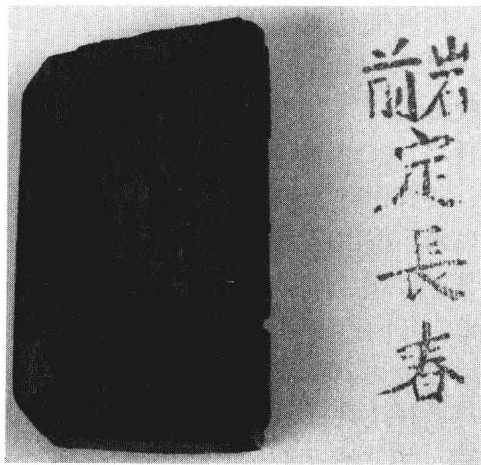 岩前定長春